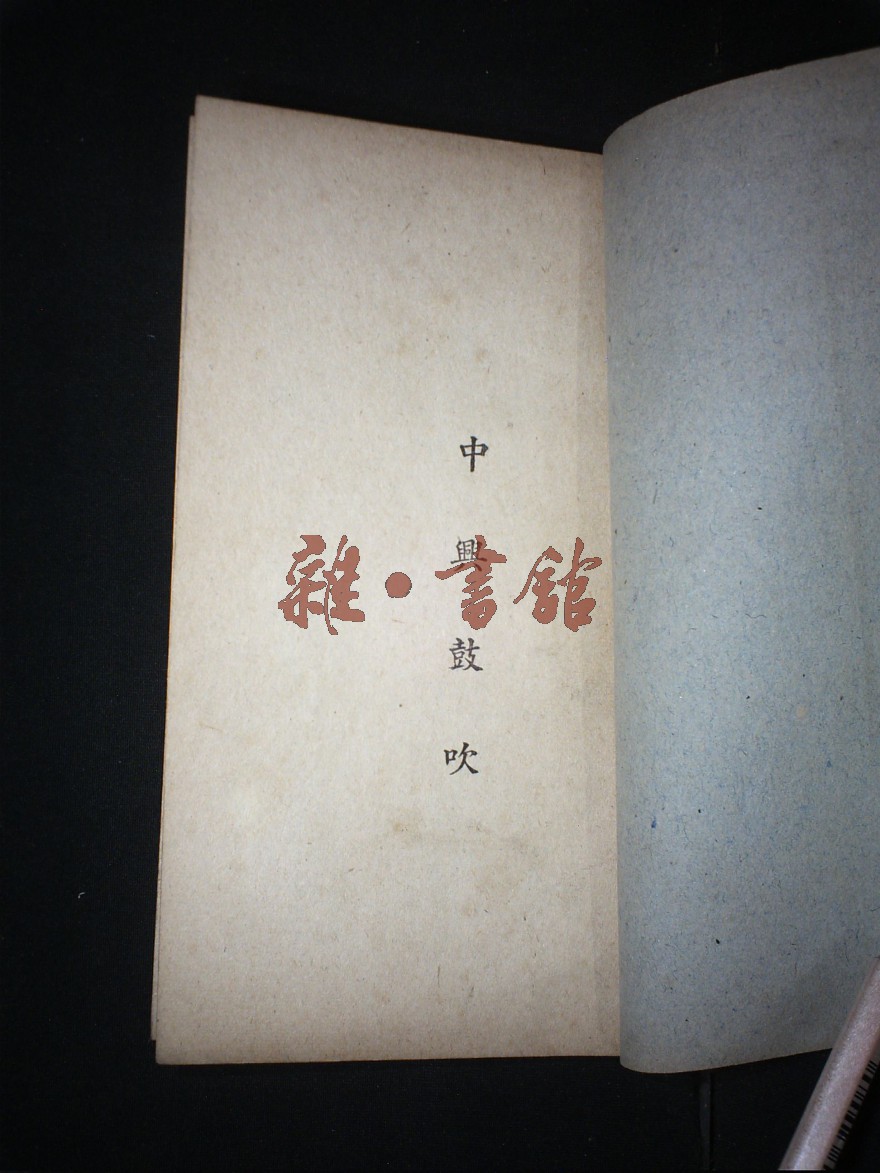 中興鼓吹
雜·書館